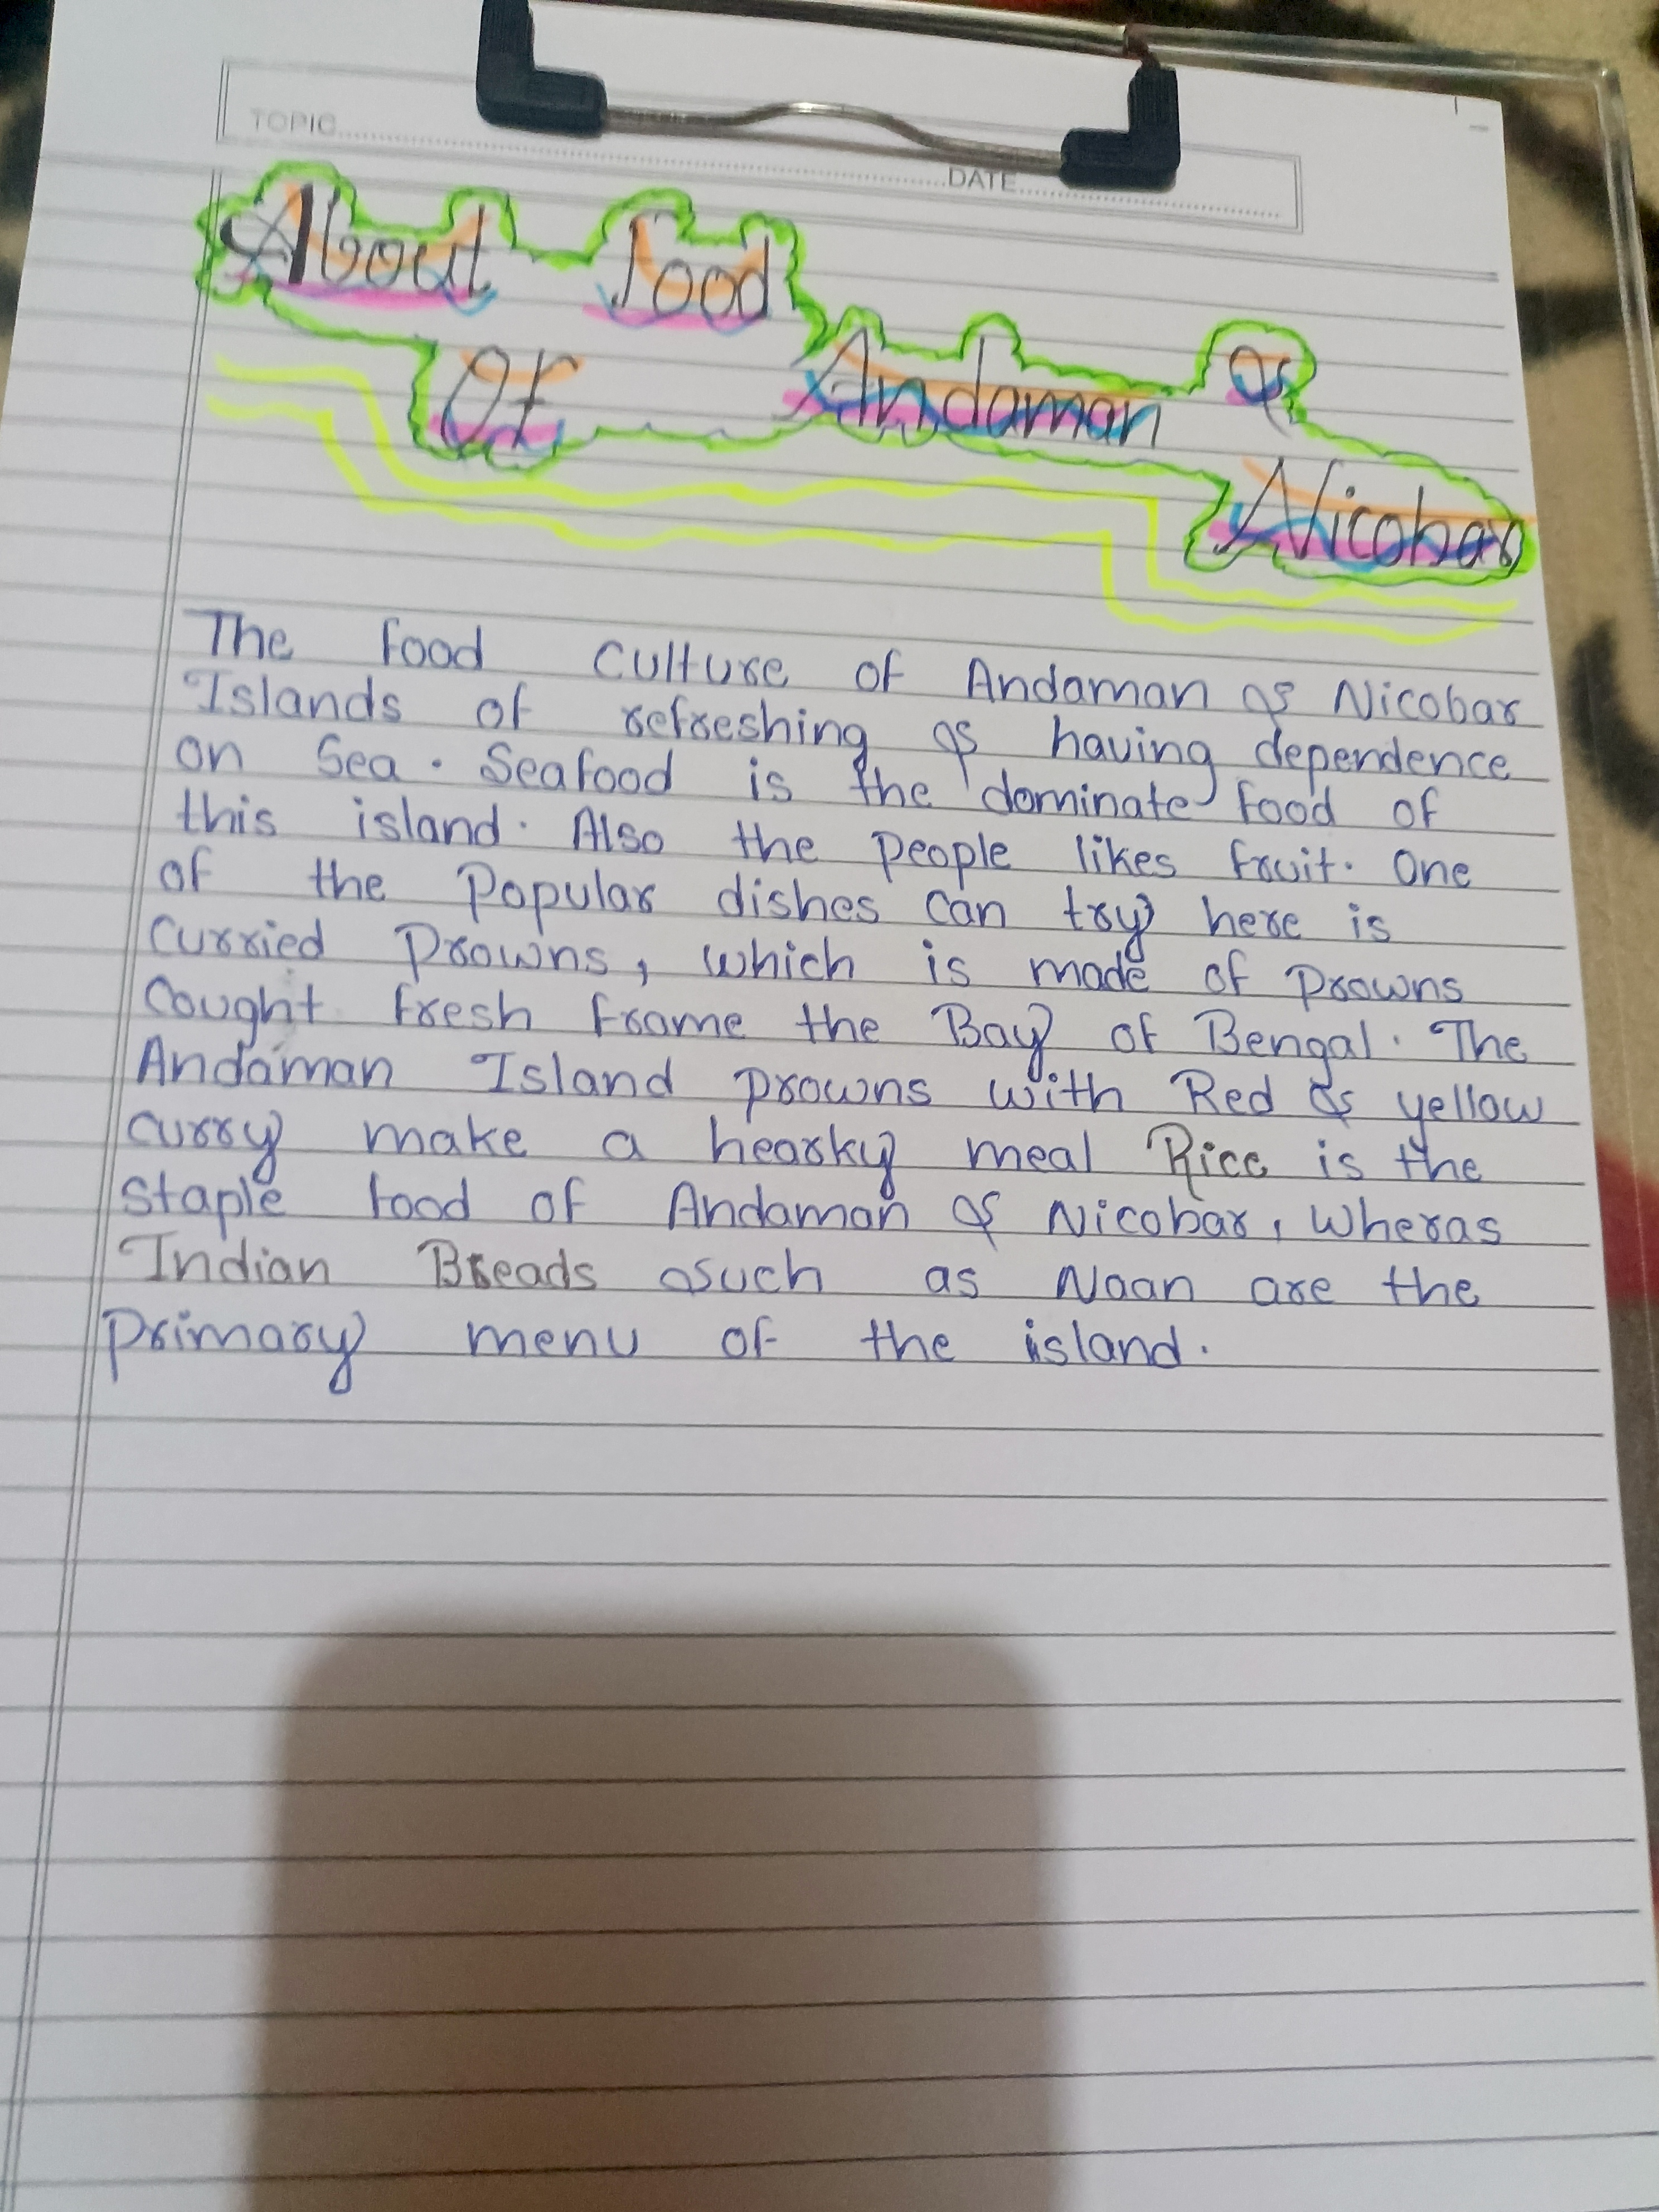 TOPIC
DATE
About Food
Of Andaman &
Nicobar
The Food Culture of Andaman & Nicobar
Islands of refreshing & having dependence
on Sea. Seafood is the dominate food of
this island. Also the people likes fruit. One
of the Popular dishes can try here is
Curried Prowns, which is made of Prowns
Cought fresh frame the Bay of Bengal. The
Andaman Island prowns with Red & yellow
curry make a hearky meal Rice is the
Staple food of Andaman & Nicobar, Wheras
Indian Breads such as Naan are the
primary menu of the island.